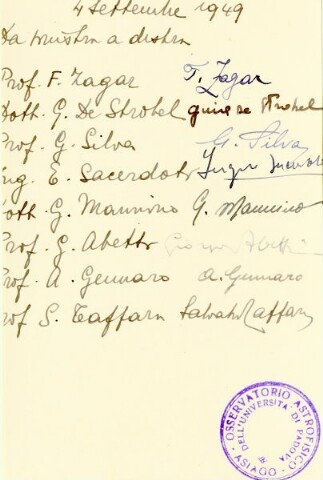 4 settembre 1949
Da sinistra a destra
Prof. F. Zagar F. Zagar
Dott. G. De Strobel
Prof. G. Silva G. Silva
Ing. E. Sacerdoti
Dott. G. Mannino G. Mannino
Prof. G. Abetti Giorgio Abetti
Prof. A. Gennaro A. Gennaro
Prof S. Taffara Salvatore Taffara
OSSERVATORIO ASTROFISICO
DELL'UNIVERSITÀ DI PADOVA
ASIAGO